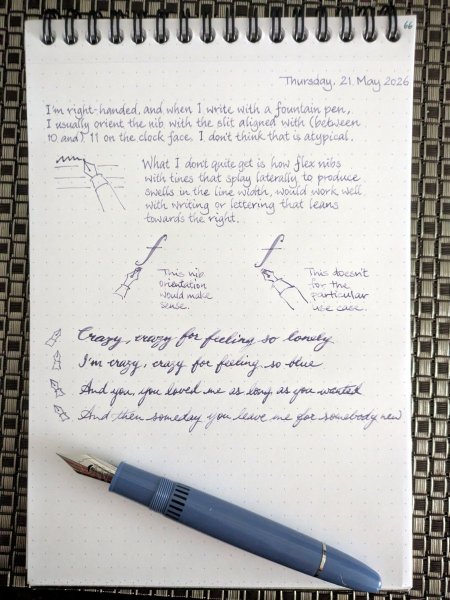 66
Thursday, 21. May 2026
I'm right-handed, and when I write with a fountain pen,
I usually orient the nib with the slit aligned with (between
10 and) 11 on the clock face. I don't think that is atypical.
What I don't quite get is how flex nibs
with tines that splay laterally to produce
swells in the line width, would work well
with writing or lettering that leans
towards the right.
f
f
This nib
orientation
would make
sense.
This doesn't
for the
particular
use case.
Crazy, crazy for feeling so lonely
I'm crazy, crazy for feeling so blue
And you, you loved me as long as you wanted
And then someday you leave me for somebody new